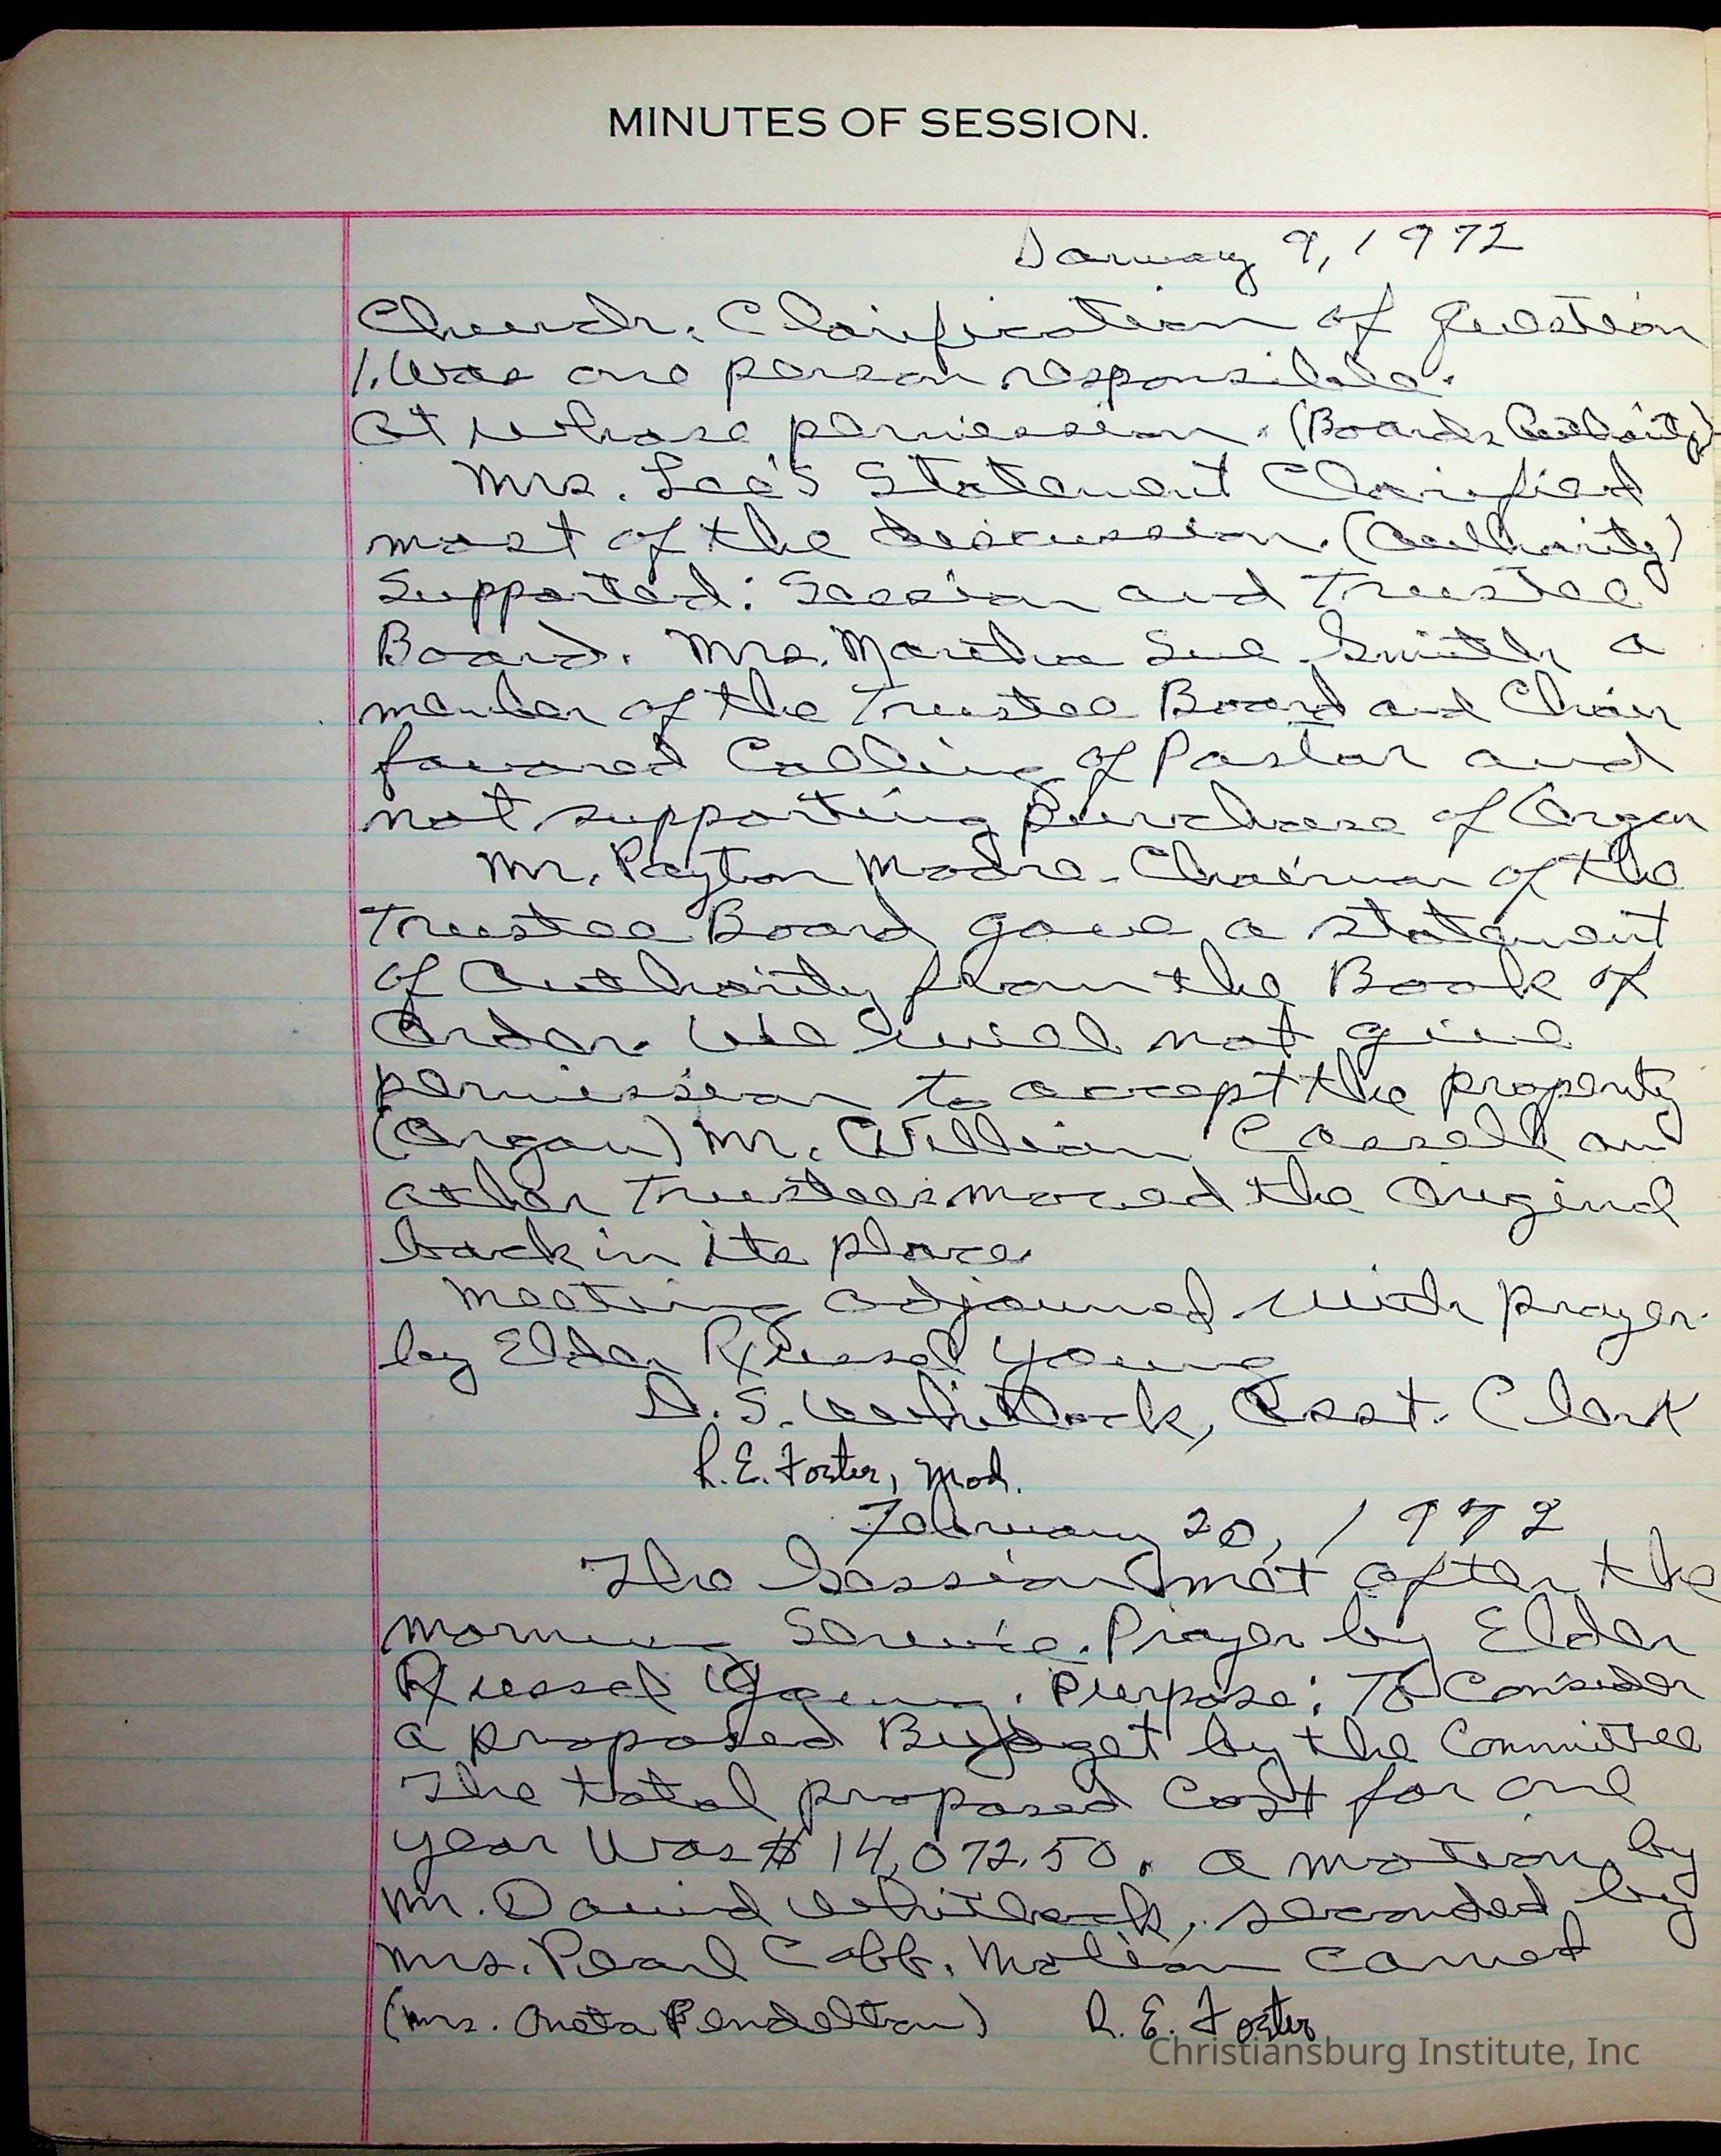 MINUTES OF SESSION.
January 9, 1972
Church. Clarification of Question
1. Was one person responsible.
At whose permission. (Boards Authority)
Mrs. Lee's Statement Clarified
most of the discussion. (Authority)
Supported: Session and Trustee
Board. Mrs. Martha Sue Smith a
member of the Trustee Board and Choir
favored Calling of Pastor and
not supporting purchase of Organ
Mr. Payton Moore - Chairman of the
Trustee Board gave a statement
of Authority from the Book of
Order. We will not give
permission to accept the property
(Organ) Mr. William Cassell and
other Trustees moved the Original
back in its place.
Meeting adjourned with prayer
by Elder Russel Young
D. S. Whitlock, Asst. Clerk
R. E. Foster, Mod.
February 20, 1972
The Session met after the
morning Service. Prayer by Elder
Russel Young. Purpose: To Consider
a proposed Budget by the Committee
The total proposed Cost for one
year Was $14,072.50. A motion by
Mr. David Whitlock, seconded by
Mrs. Pearl Cobb. Motion carried
(Mrs. Oneta Pendelton) R. E. Foster
Christiansburg Institute, Inc